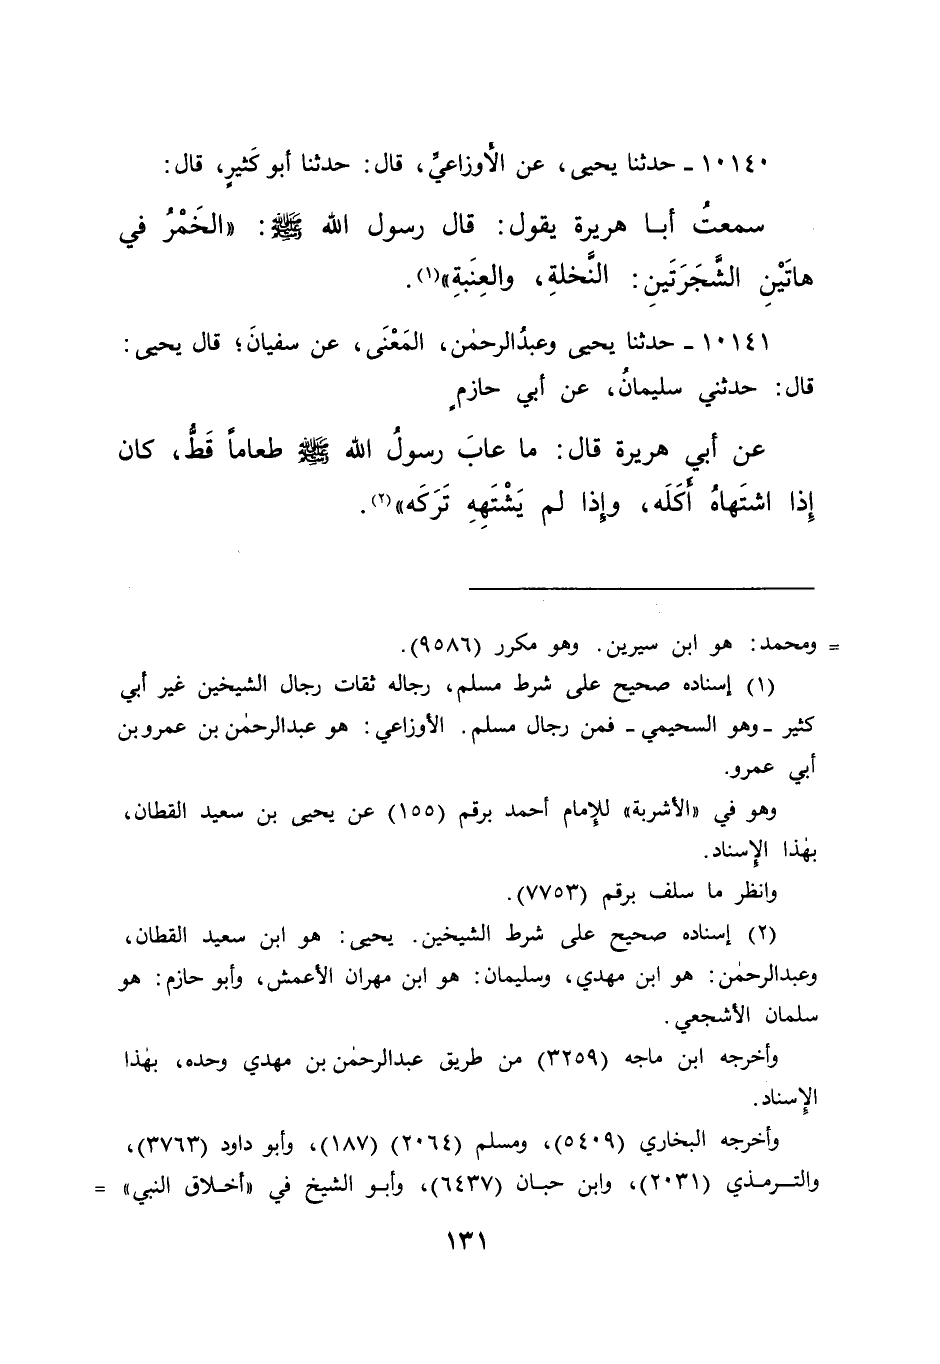 ١٠١٤٠ ـ حدثنا يحيى، عن الأوزاعيِّ، قال: حدثنا أبو كَثيرٍ، قال:
سمعتُ أبا هريرة يقول: قال رسول الله ﷺ: «الخَمْرُ في
هاتَيْنِ الشَّجَرَتَينِ: النَّخلةِ، والعِنَبةِ»(١).
١٠١٤١ ـ حدثنا يحيى وعبدُالرحمٰن، المَعْنَى، عن سفيانَ؛ قال يحيى:
قال: حدثني سليمانُ، عن أبي حازمٍ
عن أبي هريرة قال: ما عابَ رسولُ الله ﷺ طعاماً قَطُّ، كان
إِذا اشتَهاهُ أَكَلَه، وإِذا لم يَشْتَهِهِ تَرَكَه»(٢).
= ومحمد: هو ابن سيرين. وهو مكرر (٩٥٨٦).
(١) إسناده صحيح على شرط مسلم، رجاله ثقات رجال الشيخين غير أبي
كثير ـ وهو السحيمي ـ فمن رجال مسلم. الأوزاعي: هو عبدالرحمٰن بن عمرو بن
أبي عمرو.
وهو في «الأشربة» للإمام أحمد برقم (١٥٥) عن يحيى بن سعيد القطان،
بهٰذا الإسناد.
وانظر ما سلف برقم (٧٧٥٣).
(٢) إسناده صحيح على شرط الشيخين. يحيى: هو ابن سعيد القطان،
وعبدالرحمٰن: هو ابن مهدي، وسليمان: هو ابن مهران الأعمش، وأبو حازم: هو
سلمان الأشجعي.
وأخرجه ابن ماجه (٣٢٥٩) من طريق عبدالرحمٰن بن مهدي وحده، بهٰذا
الإسناد.
وأخرجه البخاري (٥٤٠٩)، ومسلم (٢٠٦٤) (١٨٧)، وأبو داود (٣٧٦٣)،
والترمذي (٢٠٣١)، وابن حبان (٦٤٣٧)، وأبو الشيخ في «أخلاق النبي» =
١٣١